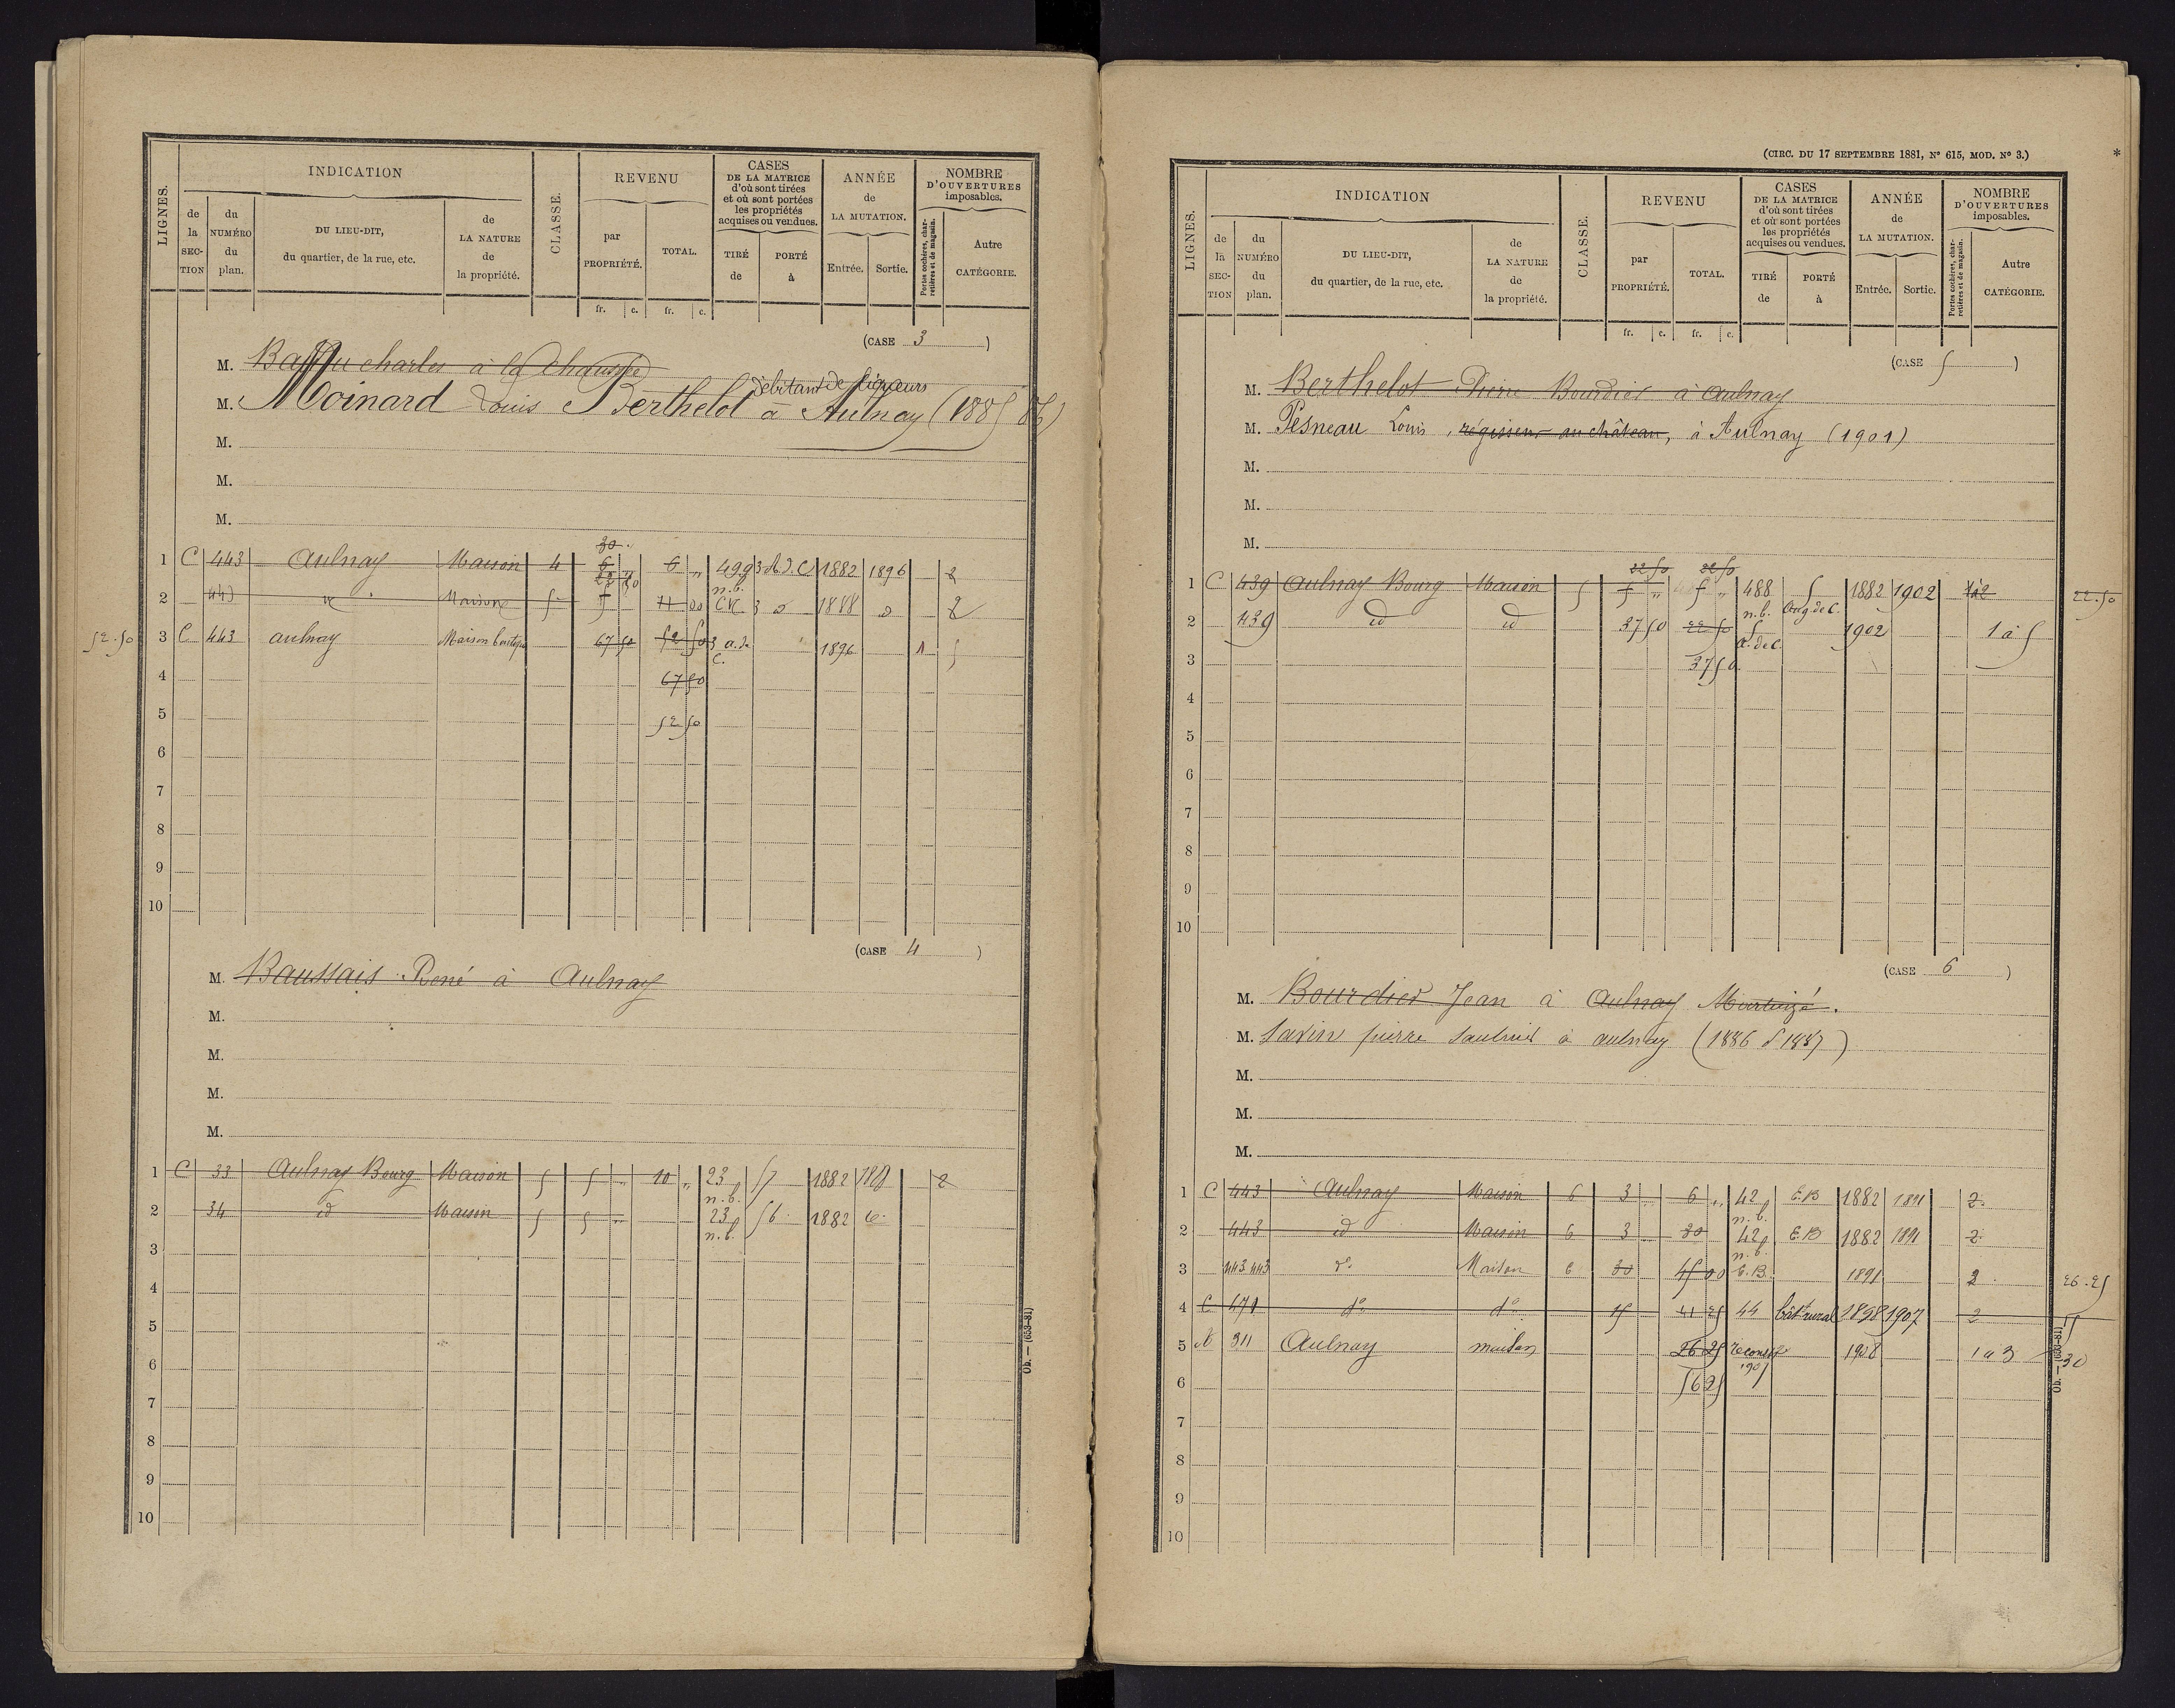 LIGNES.
INDICATION
de la SECTION
du NUMÉRO du plan.
DU LIEU-DIT, du quartier, de la rue, etc.
de LA NATURE de la propriété.
CLASSE.
REVENU
par PROPRIÉTÉ.
TOTAL.
fr. c. fr. c.
CASES DE LA MATRICE d'où sont tirées et où sont portées les propriétés acquises ou vendues.
TIRÉ de
PORTÉ à
ANNÉE de LA MUTATION.
Entrée. Sortie.
NOMBRE D'OUVERTURES imposables.
Portes cochères, charretières et de magasin.
Autre CATÉGORIE.
(CASE 3 )
M. charles à la Chaussée
débitant de liqueurs
M. Moinard Louis Berthelot à Aulnay (1885 86)
M.
M.
M.
30
1 C 443 Aulnay Maison 4 6 6 " 499 3 A.d.C 1882 1896 2
n.b.
2 443 Maison 5 11 00 3 1888 2
52.50 3 C 443 aulnay Maison boutique 67 50 52 50 3 a.d. C. 1896 1 5
4 67 50
5 52 50
6
7
8
9
10
(CASE 4 )
M. Baussais René à Aulnay
M.
M.
M.
M.
1 C 33 Aulnay Bourg Maison 5 5 " 10 " 23 57 1882 2
n.b.
2 34 id Maison 5 5 " 23 56 1882
n.b.
3
4
5
6
7
8
9
10
Ob. — (653-81)
(CIRC. DU 17 SEPTEMBRE 1881, N° 615, MOD. N° 3.)
*
LIGNES.
INDICATION
de la SECTION
du NUMÉRO du plan.
DU LIEU-DIT, du quartier, de la rue, etc.
de LA NATURE de la propriété.
CLASSE.
REVENU
par PROPRIÉTÉ.
TOTAL.
fr. c. fr. c.
CASES DE LA MATRICE d'où sont tirées et où sont portées les propriétés acquises ou vendues.
TIRÉ de
PORTÉ à
ANNÉE de LA MUTATION.
Entrée. Sortie.
NOMBRE D'OUVERTURES imposables.
Portes cochères, charretières et de magasin.
Autre CATÉGORIE.
(CASE 5 )
M. Berthelot Pierre Bourdier à Aulnay
M. Pesneau Louis, régisseur au château, à Aulnay (1901)
M.
M.
M.
22 50 22 50
1 C 439 Aulnay Bourg Maison 5 5 " 5 " 488 5 1882 1902 1 à 2 22.50
n.b. Aug de C.
2 439 id id 37 50 22 50 5 1902 1 à 5
a. de C.
3 37 50
4
5
6
7
8
9
10
(CASE 6 )
M. Bourdier Jean à Aulnay
M. Savin pierre à aulnay (1886 1887)
M.
M.
M.
1 C 443 Aulnay Maison 6 3 6 " 42 E.B 1882 1891 2
n.b.
2 443 id Maison 6 3 30 42 E.B 1882 1891 2
n.b.
3 443 443 d° Maison 6 30 45 00 E.B. 1891 2 26.25
4 C 471 d° d° 15 41 25 44 bât rural 1898 1907 2
5 311 Aulnay maison 26 25 reconst 1908 1 à 3 30
6 56 25
7
8
9
10
Ob. — (653-81)